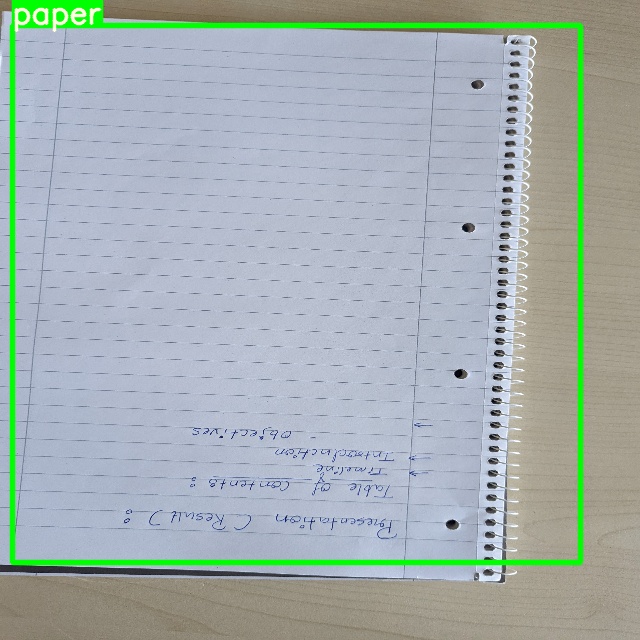 paper
Presentation (Result) :
Table of Contents :
→ Timeline &
→ Introduction
→ - objectives